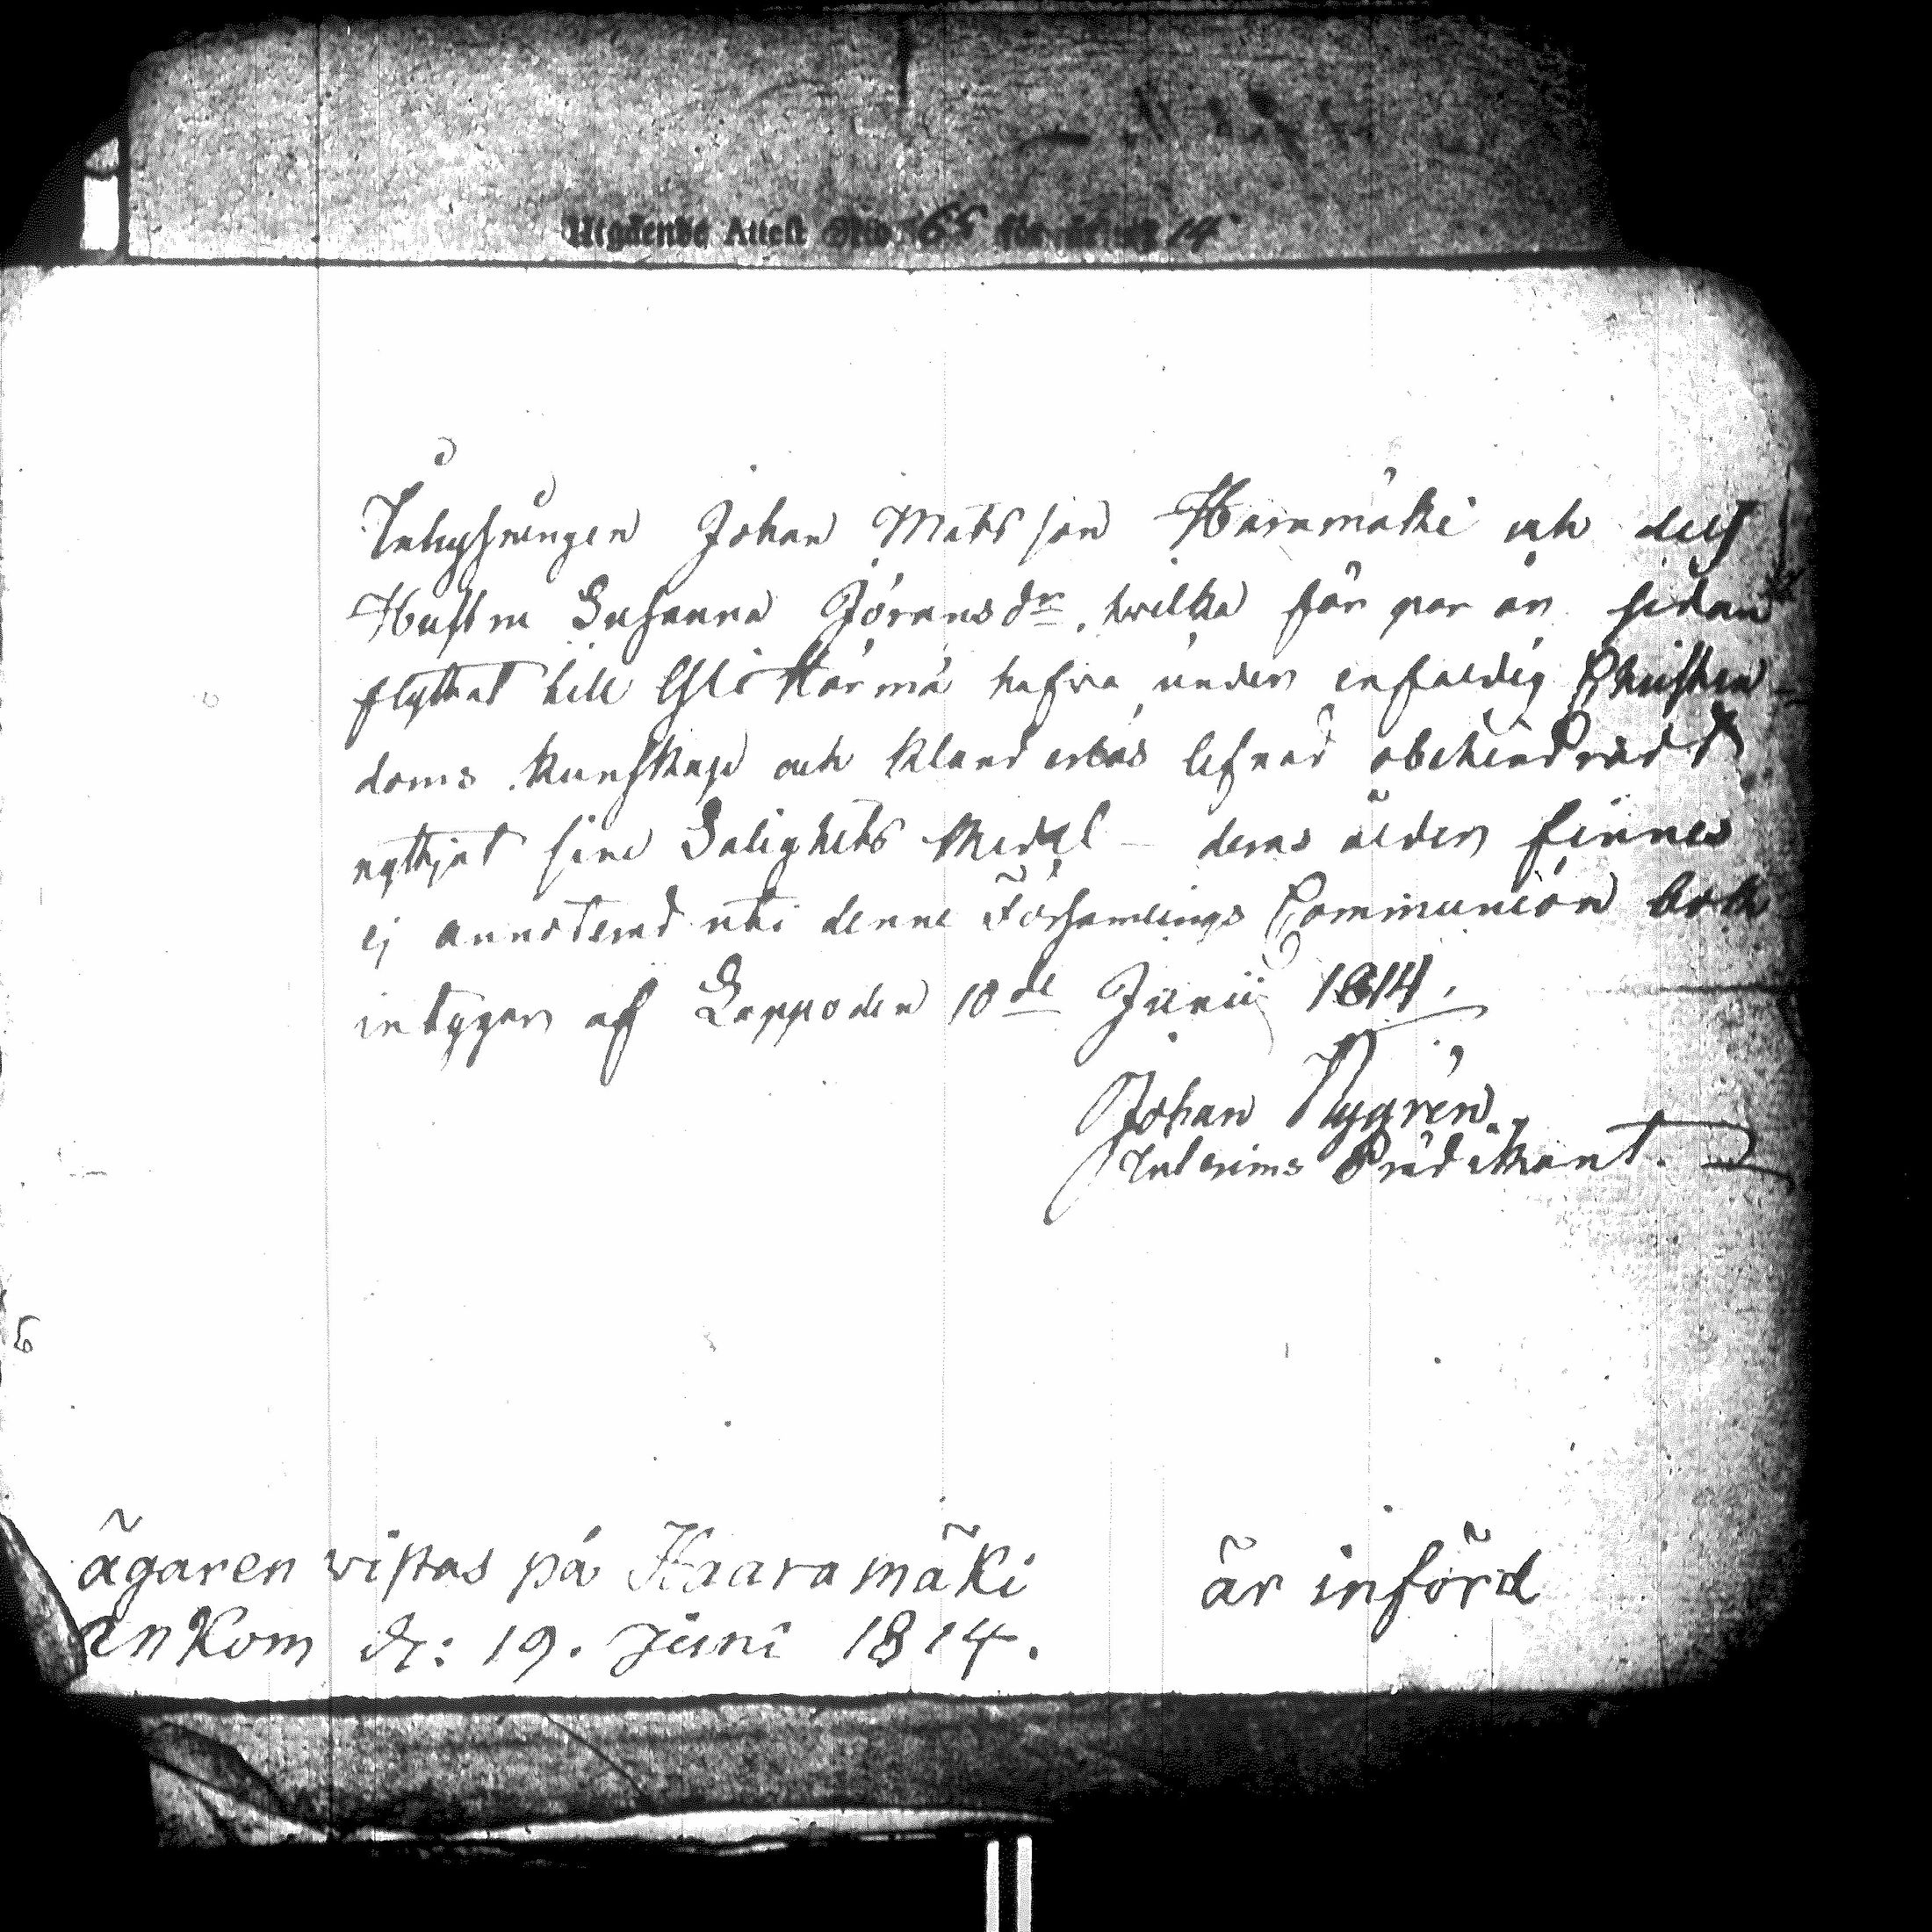 Utgående Attest No 65 för år 1814
Inhysingen Johan Matsson Harnmäki och dess
Hustru Susanna Jöransdr, hwilka för par år sedan
flyttat till Yli Härmä hafva under enfaldig Christen
doms kunskap och klanderlös lefnad obehindradt
nyttjat sine Salighets Medel - deras ålder finnes
ej annoterad uti denne Församlings Communion bok
intygar af Lappo den 18de Junii 1814.
Johan Nygrén
Interims Prädikant.
ägaren wistas på Haaramäki är införd
ankom d: 19. Juni 1814.